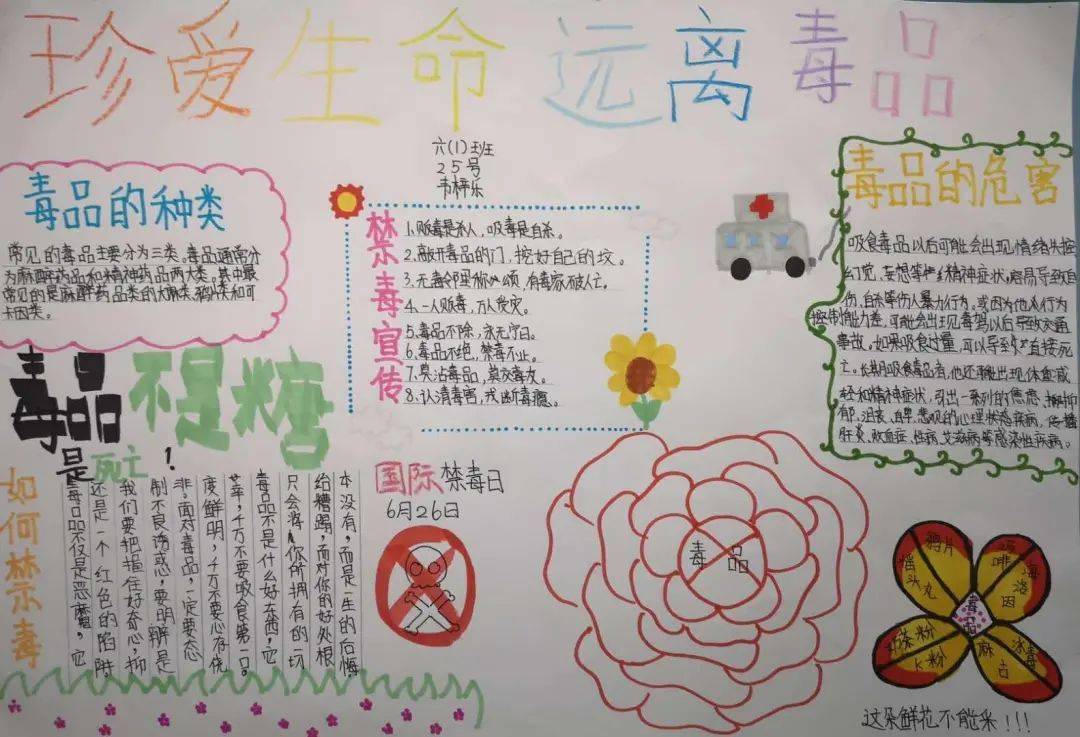 珍爱生命 远离毒品
六(1)班
25号
毒品的种类
常见的毒品主要分为三类,毒品通常分
为麻醉药品和精神药品两大类,其中最
常见的是麻醉药品类的大麻类、鸦片类和可
卡因类。
禁毒宣传
1.贩毒是杀人,吸毒是自杀。
2.敲开毒品的门,挖好自己的坟。
3.无毒邻里称颂,有毒家破人亡。
4.一人贩毒,万人受灾。
5.毒品不除,永无宁日。
6.毒品不绝,禁毒不止。
7.莫沾毒品,莫交毒友。
8.认清毒害,戒断毒瘾。
毒品的危害
吸食毒品以后可能会出现情绪失控
幻觉,妄想等精神症状,容易导致自
伤,自杀等伤人暴力行为,或因为他人行为
控制能力差,可能会出现毒驾以后导致交通
事故,如果吸食过量,可以导致直接死
亡。长期吸食毒品者,他还能出现体重减
轻和精神症状,引出一系列的焦虑、抑
郁、沮丧、自卑、悲观的心理状态疾病,传播
肝炎、败血症、性病、艾滋病等感染性疾病。
毒品不是糖
是死亡!
如何禁毒
毒品不仅是恶魔,它
还是一个红色的陷阱
我们要把握住好奇心,抑
制不良诱惑,要明辨是
非,面对毒品,一定要态
度鲜明,千万不要心存侥
幸,千万不要吸食第一口。
毒品不是什么好东西,它
只会将你所拥有的一切
给糟蹋,而对你的好处根
本没有,而是一生的后悔
国际禁毒日
6月26日
毒品
鸦片
摇头丸
吗啡
海洛因
毒品
奶茶粉
K粉
麻古
冰毒
这朵鲜花不能采!!!